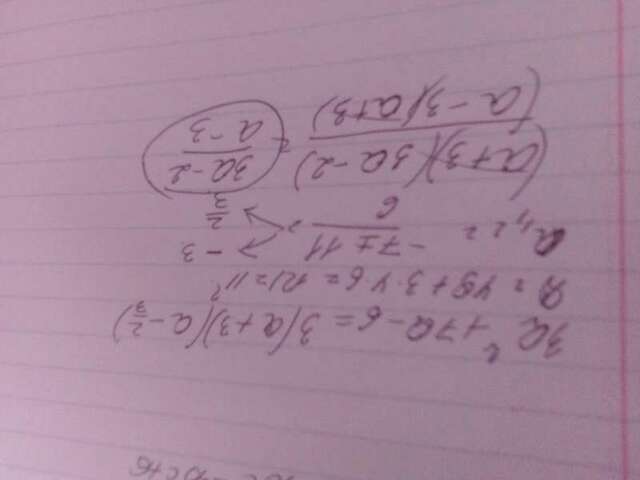 3a² + 7a - 6 = 3(a+3)(a - 2/3)
D = 49 + 3·4·6 = 121 = 11²
a₁,₂ = (-7 ± 11)/6 = -3
2/3
(a+3)(3a-2)/(a-3)(a+3) = (3a-2)/(a-3)